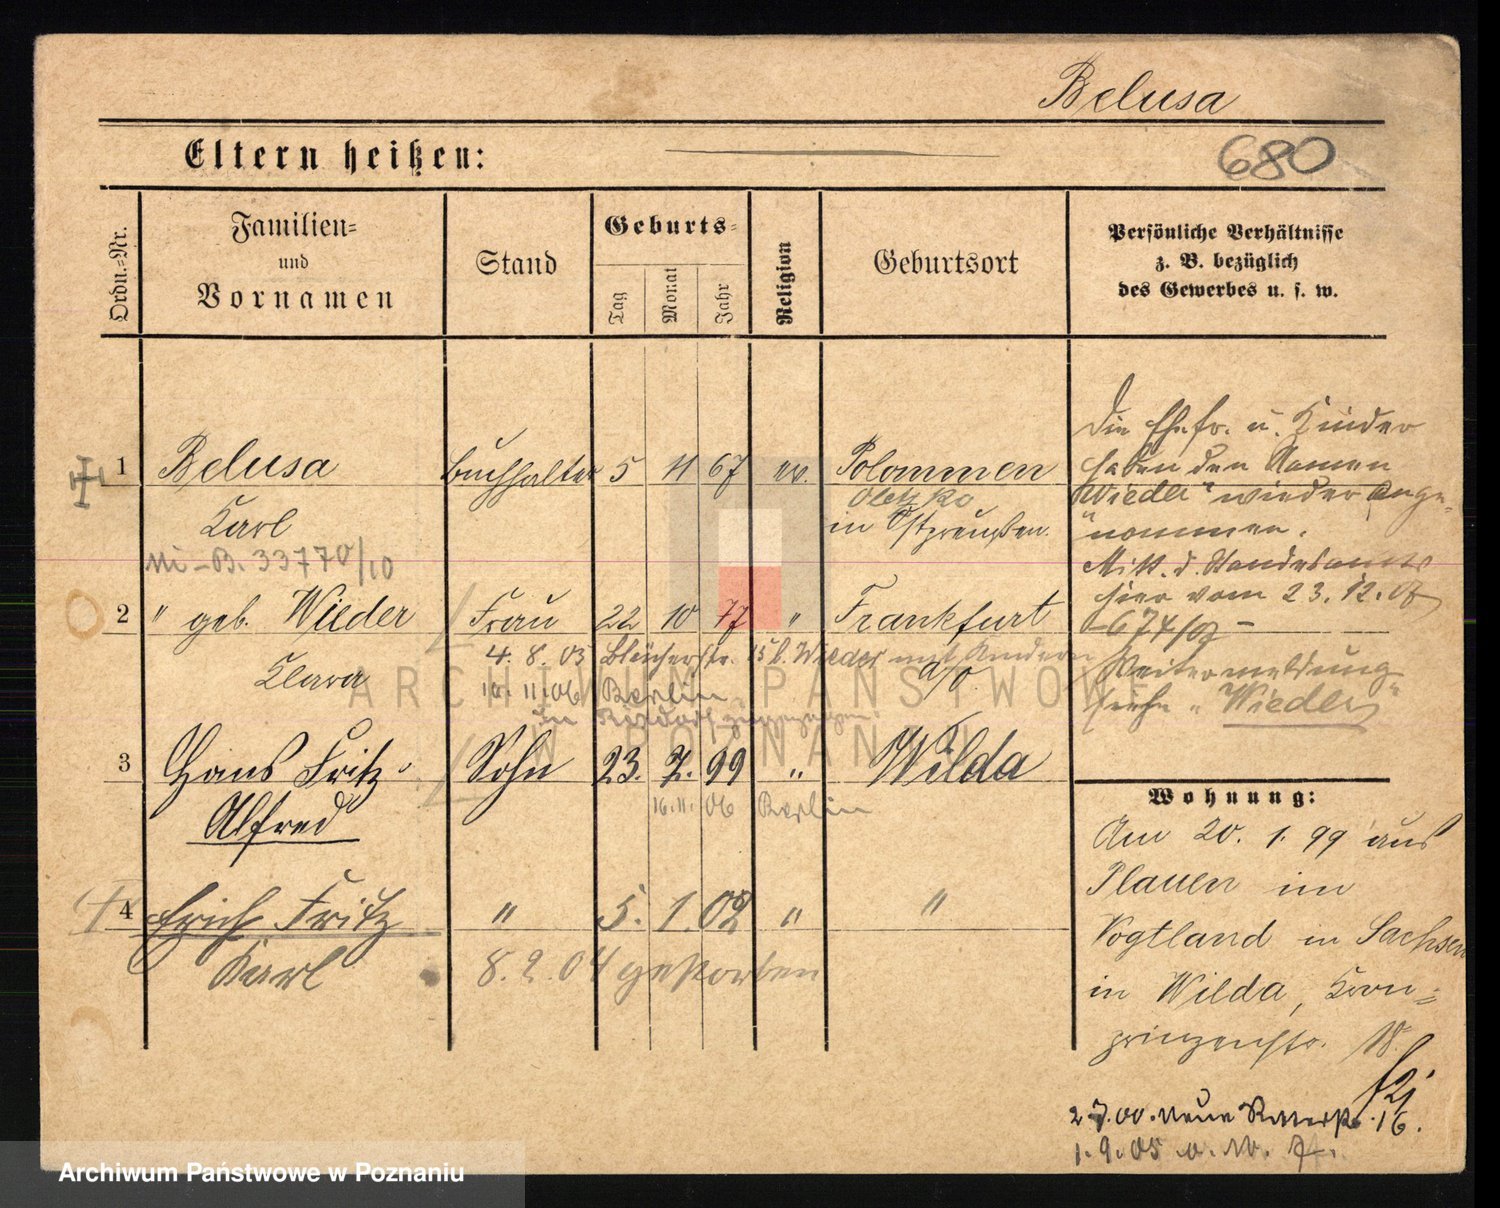 Belusa
Eltern heißen:
680
Ordn.-Nr.
Familien-
und
Vornamen
Stand
Geburts-
Tag
Monat
Jahr
Religion
Geburtsort
Persönliche Verhältnisse
z. B. bezüglich
des Gewerbes u. s. w.
1 Belusa Buchhalter 5 11 67 ev. Polommen
Karl
Oletzko
in Ostpreußen.
33770/10
2 " geb. Wieder Frau 22 10 77 " Frankfurt
Klara a/O.
4. 8. 03 Blücherstr. 15 b. Wieder mit Kindern
16. 11. 06 Berlin
in Rixdorf zugezogen.
3 Hans Fritz Sohn 23. 7. 99 " Wilda
Alfred
16. 11. 06 Berlin
4 Erich Fritz " 5. 1. 02 " "
Karl
8. 2. 04 gestorben
Die Ehefr. u. Kinder
haben den Namen
"Wieder" wieder ange-
nommen.
Mitt. d. Standesamts
hier vom 23. 12. 07
- 674/07 -
Weitermeldung
siehe "Wieder"
Wohnung:
Am 20. 1. 99 aus
Plauen im
Vogtland in Sachsen
in Wilda, Kron-
prinzenstr.
16.
1. 9. 05
ARCHIWUM PAŃSTWOWE
W POZNANIU
Archiwum Państwowe w Poznaniu